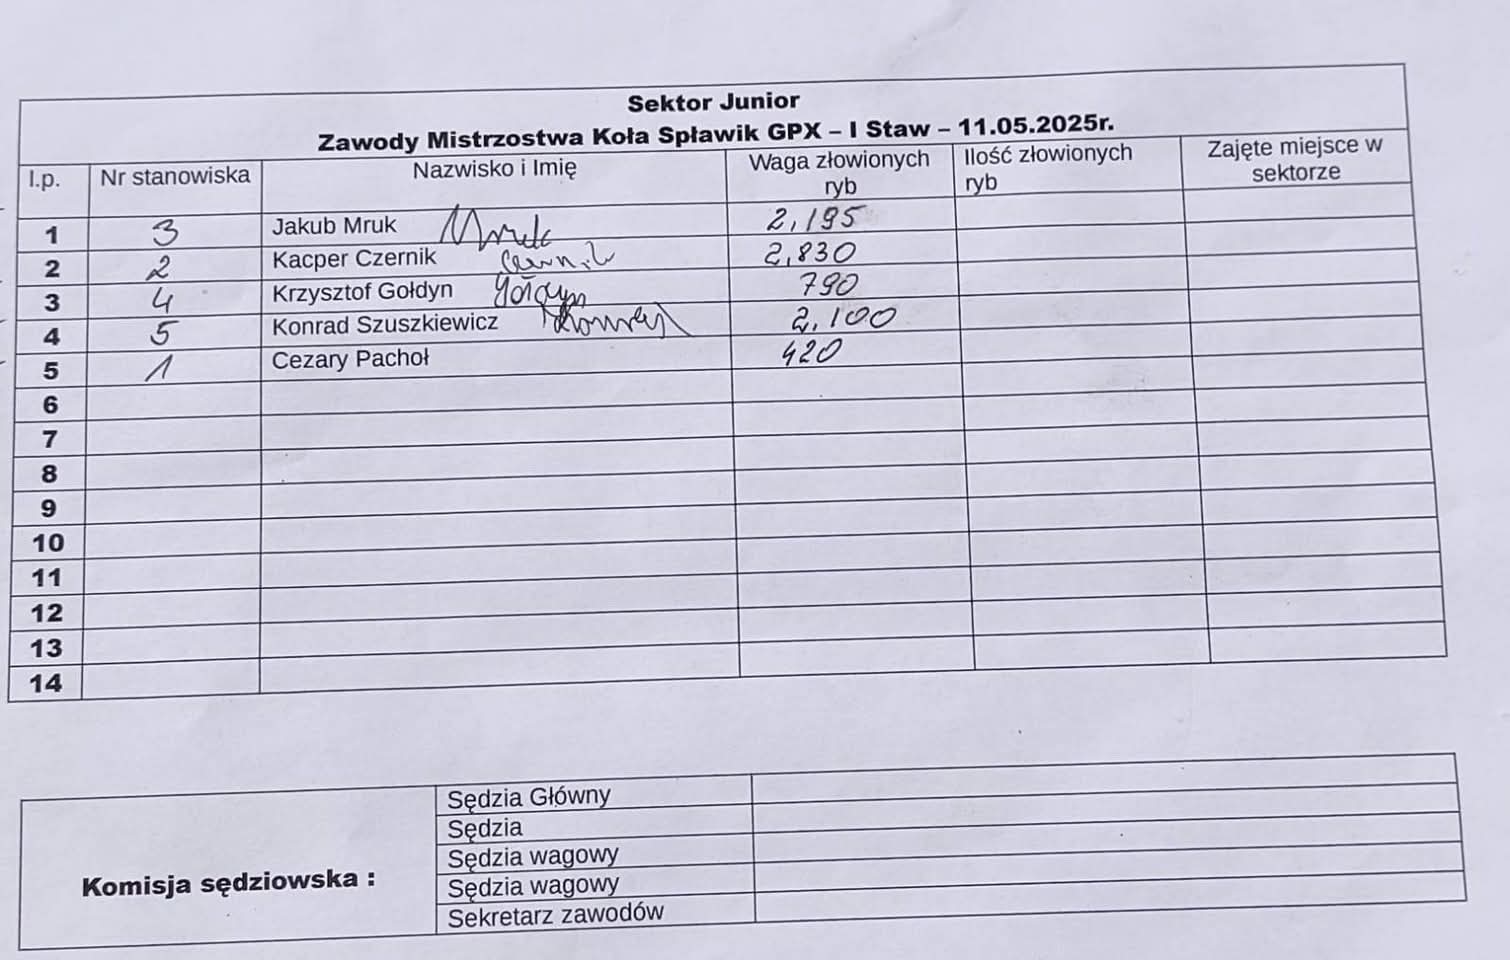 Sektor Junior
Zawody Mistrzostwa Koła Spławik GPX – I Staw – 11.05.2025r.
l.p. Nr stanowiska Nazwisko i Imię Waga złowionych ryb Ilość złowionych ryb Zajęte miejsce w sektorze
1 3 Jakub Mruk Mruk 2,195
2 2 Kacper Czernik Czernik 2,830
3 4 Krzysztof Gołdyn Gołdyn 790
4 5 Konrad Szuszkiewicz 2,100
5 1 Cezary Pachoł 420
6
7
8
9
10
11
12
13
14
Komisja sędziowska :
Sędzia Główny
Sędzia
Sędzia wagowy
Sędzia wagowy
Sekretarz zawodów